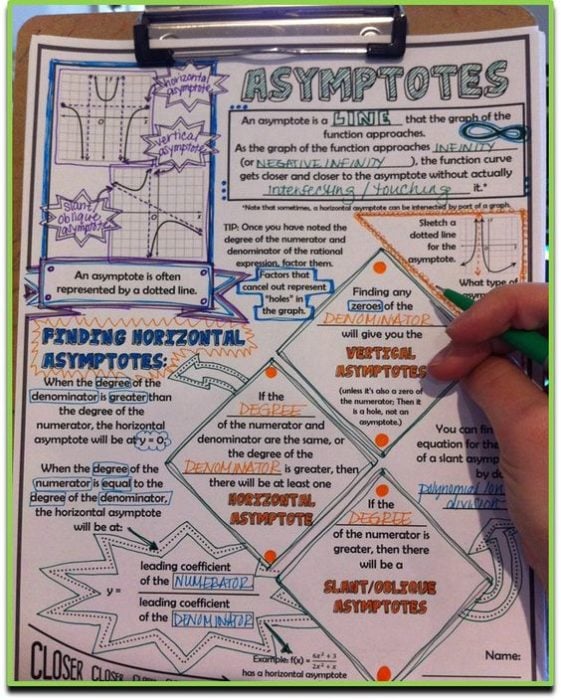 ASYMPTOTES
horizontal
asymptote
vertical
asymptote
slant/
oblique
asymptote
An asymptote is a LINE that the graph of the
function approaches.
As the graph of the function approaches INFINITY
(or NEGATIVE INFINITY ), the function curve
gets closer and closer to the asymptote without actually
intersecting / touching it.*
*Note that sometimes, a horizontal asymptote can be intersected by part of a graph.
An asymptote is often
represented by a dotted line.
TIP: Once you have noted the
degree of the numerator and
denominator of the rational
expression, factor them.
Factors that
cancel out represent
"holes" in
the graph.
Sketch a
dotted line
for the
asymptote.
What type of
Finding any
zeroes of the
DENOMINATOR
will give you the
VERTICAL
ASYMPTOTES
(unless it's also a zero of
the numerator; Then it
is a hole, not an
asymptote.)
FINDING HORIZONTAL
ASYMPTOTES:
When the degree of the
denominator is greater than
the degree of the
numerator, the horizontal
asymptote will be at y = 0.
When the degree of the
numerator is equal to the
degree of the denominator,
the horizontal asymptote
will be at:
y =
leading coefficient
of the NUMERATOR
leading coefficient
of the DENOMINATOR
If the
DEGREE
of the numerator and
denominator are the same, or
the degree of the
DENOMINATOR is greater, then
there will be at least one
HORIZONTAL
ASYMPTOTE
If the
DEGREE
of the numerator is
greater, then there
will be a
SLANT/OBLIQUE
ASYMPTOTES
You can fin
equation for the
of a slant asymp
by do
polynomial lon
division
CLOSER CLOSER CLOSER
Example: f(x) = 6x² + 3 / 2x² + x
has a horizontal asymptote
Name: